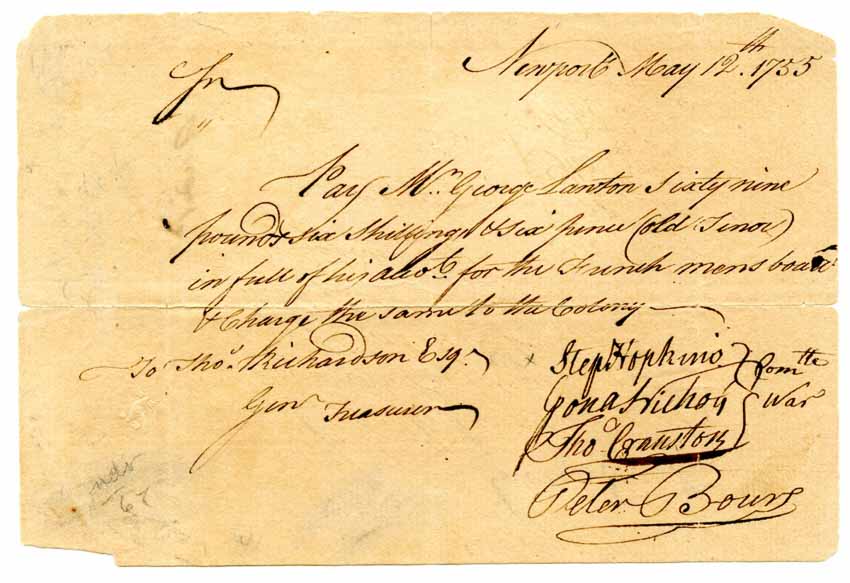 Newport May 12th. 1755
Sr
Pay Mr. George Lanton Sixty nine
pounds six Shillings & six pence (old Tenor)
in full of his acct. for the French mens board
& Charge the same to the Colony
To Thos. Richardson Esqr.
Genl Treasurer
Step Hopkins
Jona Nichols
Thos Cranston
Comtte
War
Peter Bours
67